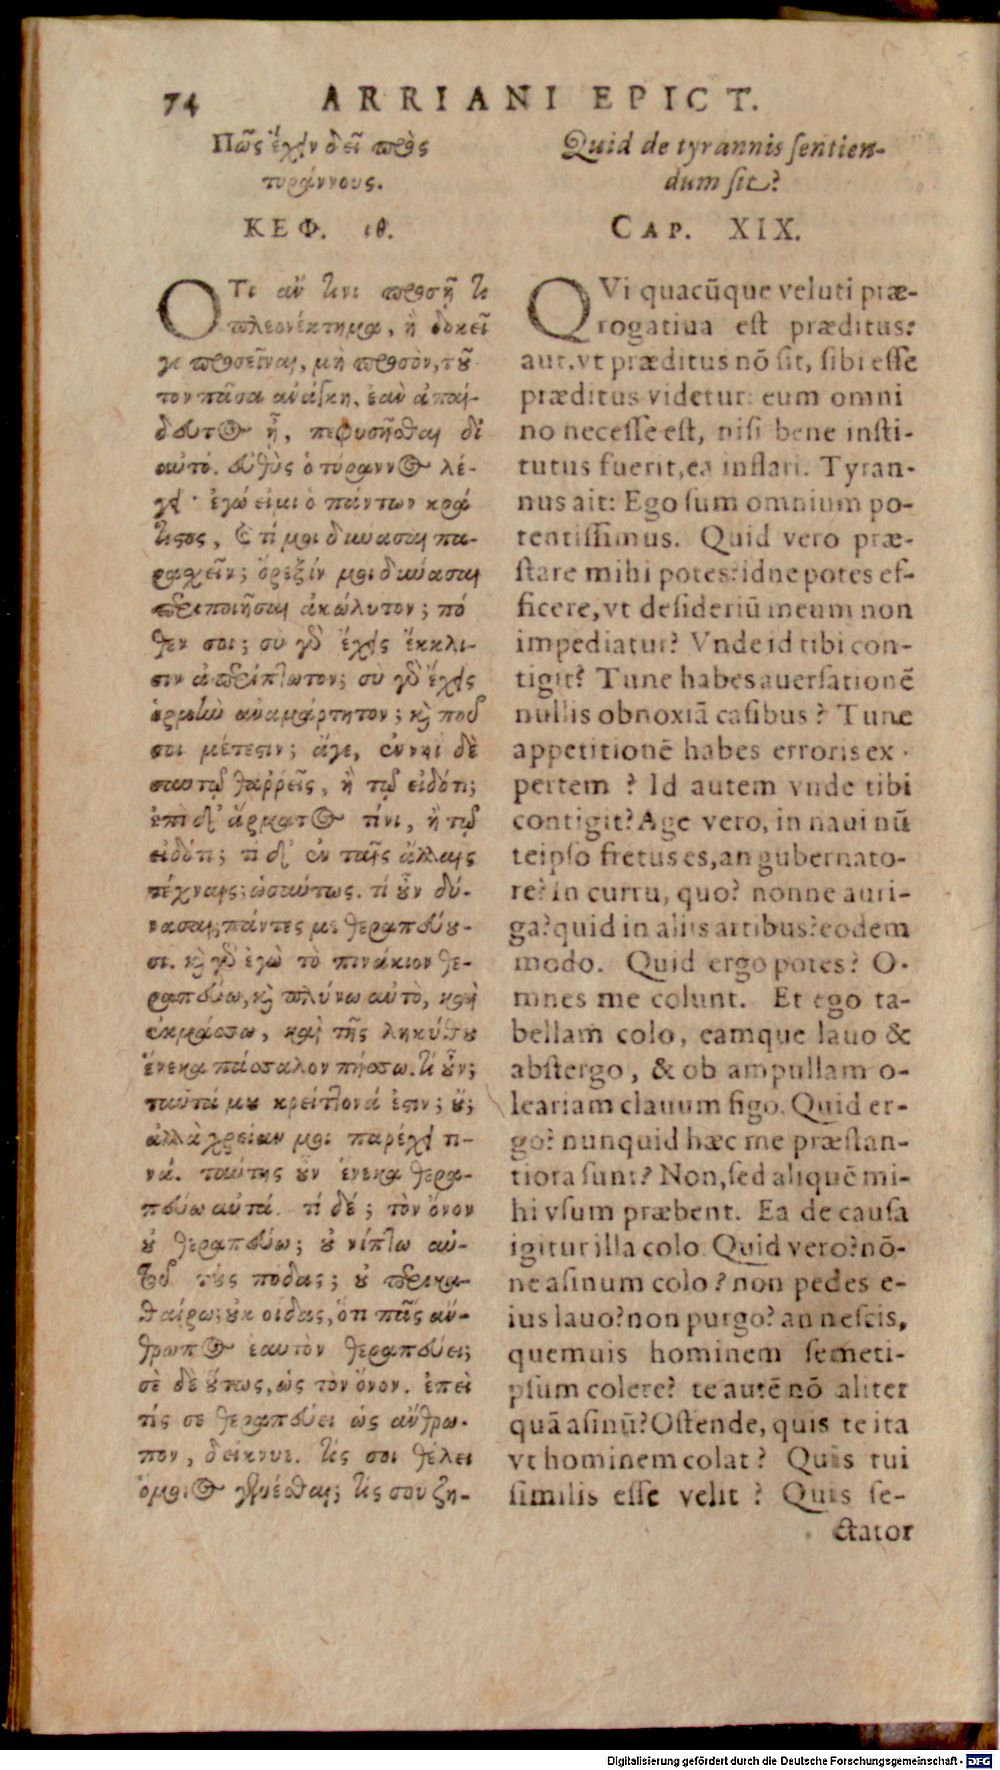 74 ARRIANI EPICT.
Πῶς ἔχειν δεῖ πρὸς
τυράννους.
ΚΕΦ. ιθ.
ΟΤι ἄν τινι προσῇ τι
πλεονέκτημα, ἢ δοκεῖ
γε προσεῖναι, μὴ προσὸν, τοῦ
τον πᾶσα ἀνάγκη, ἐὰν ἀπαί-
δευτος ᾖ, πεφυσῆσθαι δι'
αὐτό. εὐθὺς ὁ τύραννος λέ-
γει· ἐγώ εἰμι ὁ πάντων κρά
τιστος, καὶ τί μοι δύνασαι πα-
ρασχεῖν; ὄρεξίν μοι δύνασαι
περιποιῆσαι ἀκώλυτον; πό
θεν σοι; σὺ γὰρ ἔχεις ἔκκλι-
σιν ἀπερίπτωτον; σὺ γὰρ ἔχεις
ὁρμὴν ἀναμάρτητον; καὶ ποῦ
σοι μέτεστιν; ἄγε, ἐν νηὶ δὲ
σαυτῷ θαῤῥεῖς, ἢ τῷ εἰδότι;
ἐπὶ δ' ἅρματος τίνι, ἢ τῷ
εἰδότι; τί δ' ἐν ταῖς ἄλλαις
τέχναις; ὡσαύτως. τί οὖν δύ-
νασαι; πάντες με θεραπεύου-
σι. καὶ γὰρ ἐγὼ τὸ πινάκιον θε-
ραπεύω, καὶ πλύνω αὐτὸ, καὶ
ἐκμάσσω, καὶ τῆς ληκύθου
ἕνεκα πάσσαλον πήσσω. τί οὖν;
ταῦτά μου κρείττονά ἐστιν; οὔ;
ἀλλὰ χρείαν μοι παρέχει τι-
νά. ταύτης οὖν ἕνεκα θερα-
πεύω αὐτά. τί δέ; τὸν ὄνον
οὐ θεραπεύω; οὐ νίπτω αὐ-
τοῦ τοὺς πόδας; οὐ περικα-
θαίρω; οὐκ οἶδας, ὅτι πᾶς ἄν-
θρωπος ἑαυτὸν θεραπεύει;
σὲ δὲ οὕτως, ὡς τὸν ὄνον. ἐπεὶ
τίς σε θεραπεύει ὡς ἄνθρω-
πον, δείκνυε. τίς σοι θέλει
ὅμοιος γενέσθαι; τίς σου ζη-
Quid de tyrannis sentien-
dum sit?
CAP. XIX.
QVi quacũque veluti præ-
rogatiua est præditus:
aut, vt præditus nõ sit, sibi esse
præditus videtur: eum omni
no necesse est, nisi bene insti-
tutus fuerit, ea inflari. Tyran-
nus ait: Ego sum omnium po-
tentissimus. Quid vero præ-
stare mihi potes? idne potes ef-
ficere, vt desideriũ meum non
impediatur? Vnde id tibi con-
tigit? Tune habes auersationẽ
nullis obnoxiã casibus? Tune
appetitionẽ habes erroris ex-
pertem? Id autem vnde tibi
contigit? Age vero, in naui nũ
teipso fretus es, an gubernato-
re? in curru, quo? nonne auri-
ga? quid in aliis artibus? eodem
modo. Quid ergo potes? O-
mnes me colunt. Et ego ta-
bellam colo, eamque lauo &
abstergo, & ob ampullam o-
leariam clauum figo. Quid er-
go? nunquid hæc me præstan-
tiora sunt? Non, sed aliquẽ mi-
hi vsum præbent. Ea de causa
igitur illa colo. Quid vero? nõ-
ne asinum colo? non pedes e-
ius lauo? non purgo? an nescis,
quemuis hominem semeti-
psum colere? te autẽ nõ aliter
quã asinũ? Ostende, quis te ita
vt hominem colat? Quis tui
similis esse velit? Quis se-
ctator
Digitalisierung gefördert durch die Deutsche Forschungsgemeinschaft - DFG